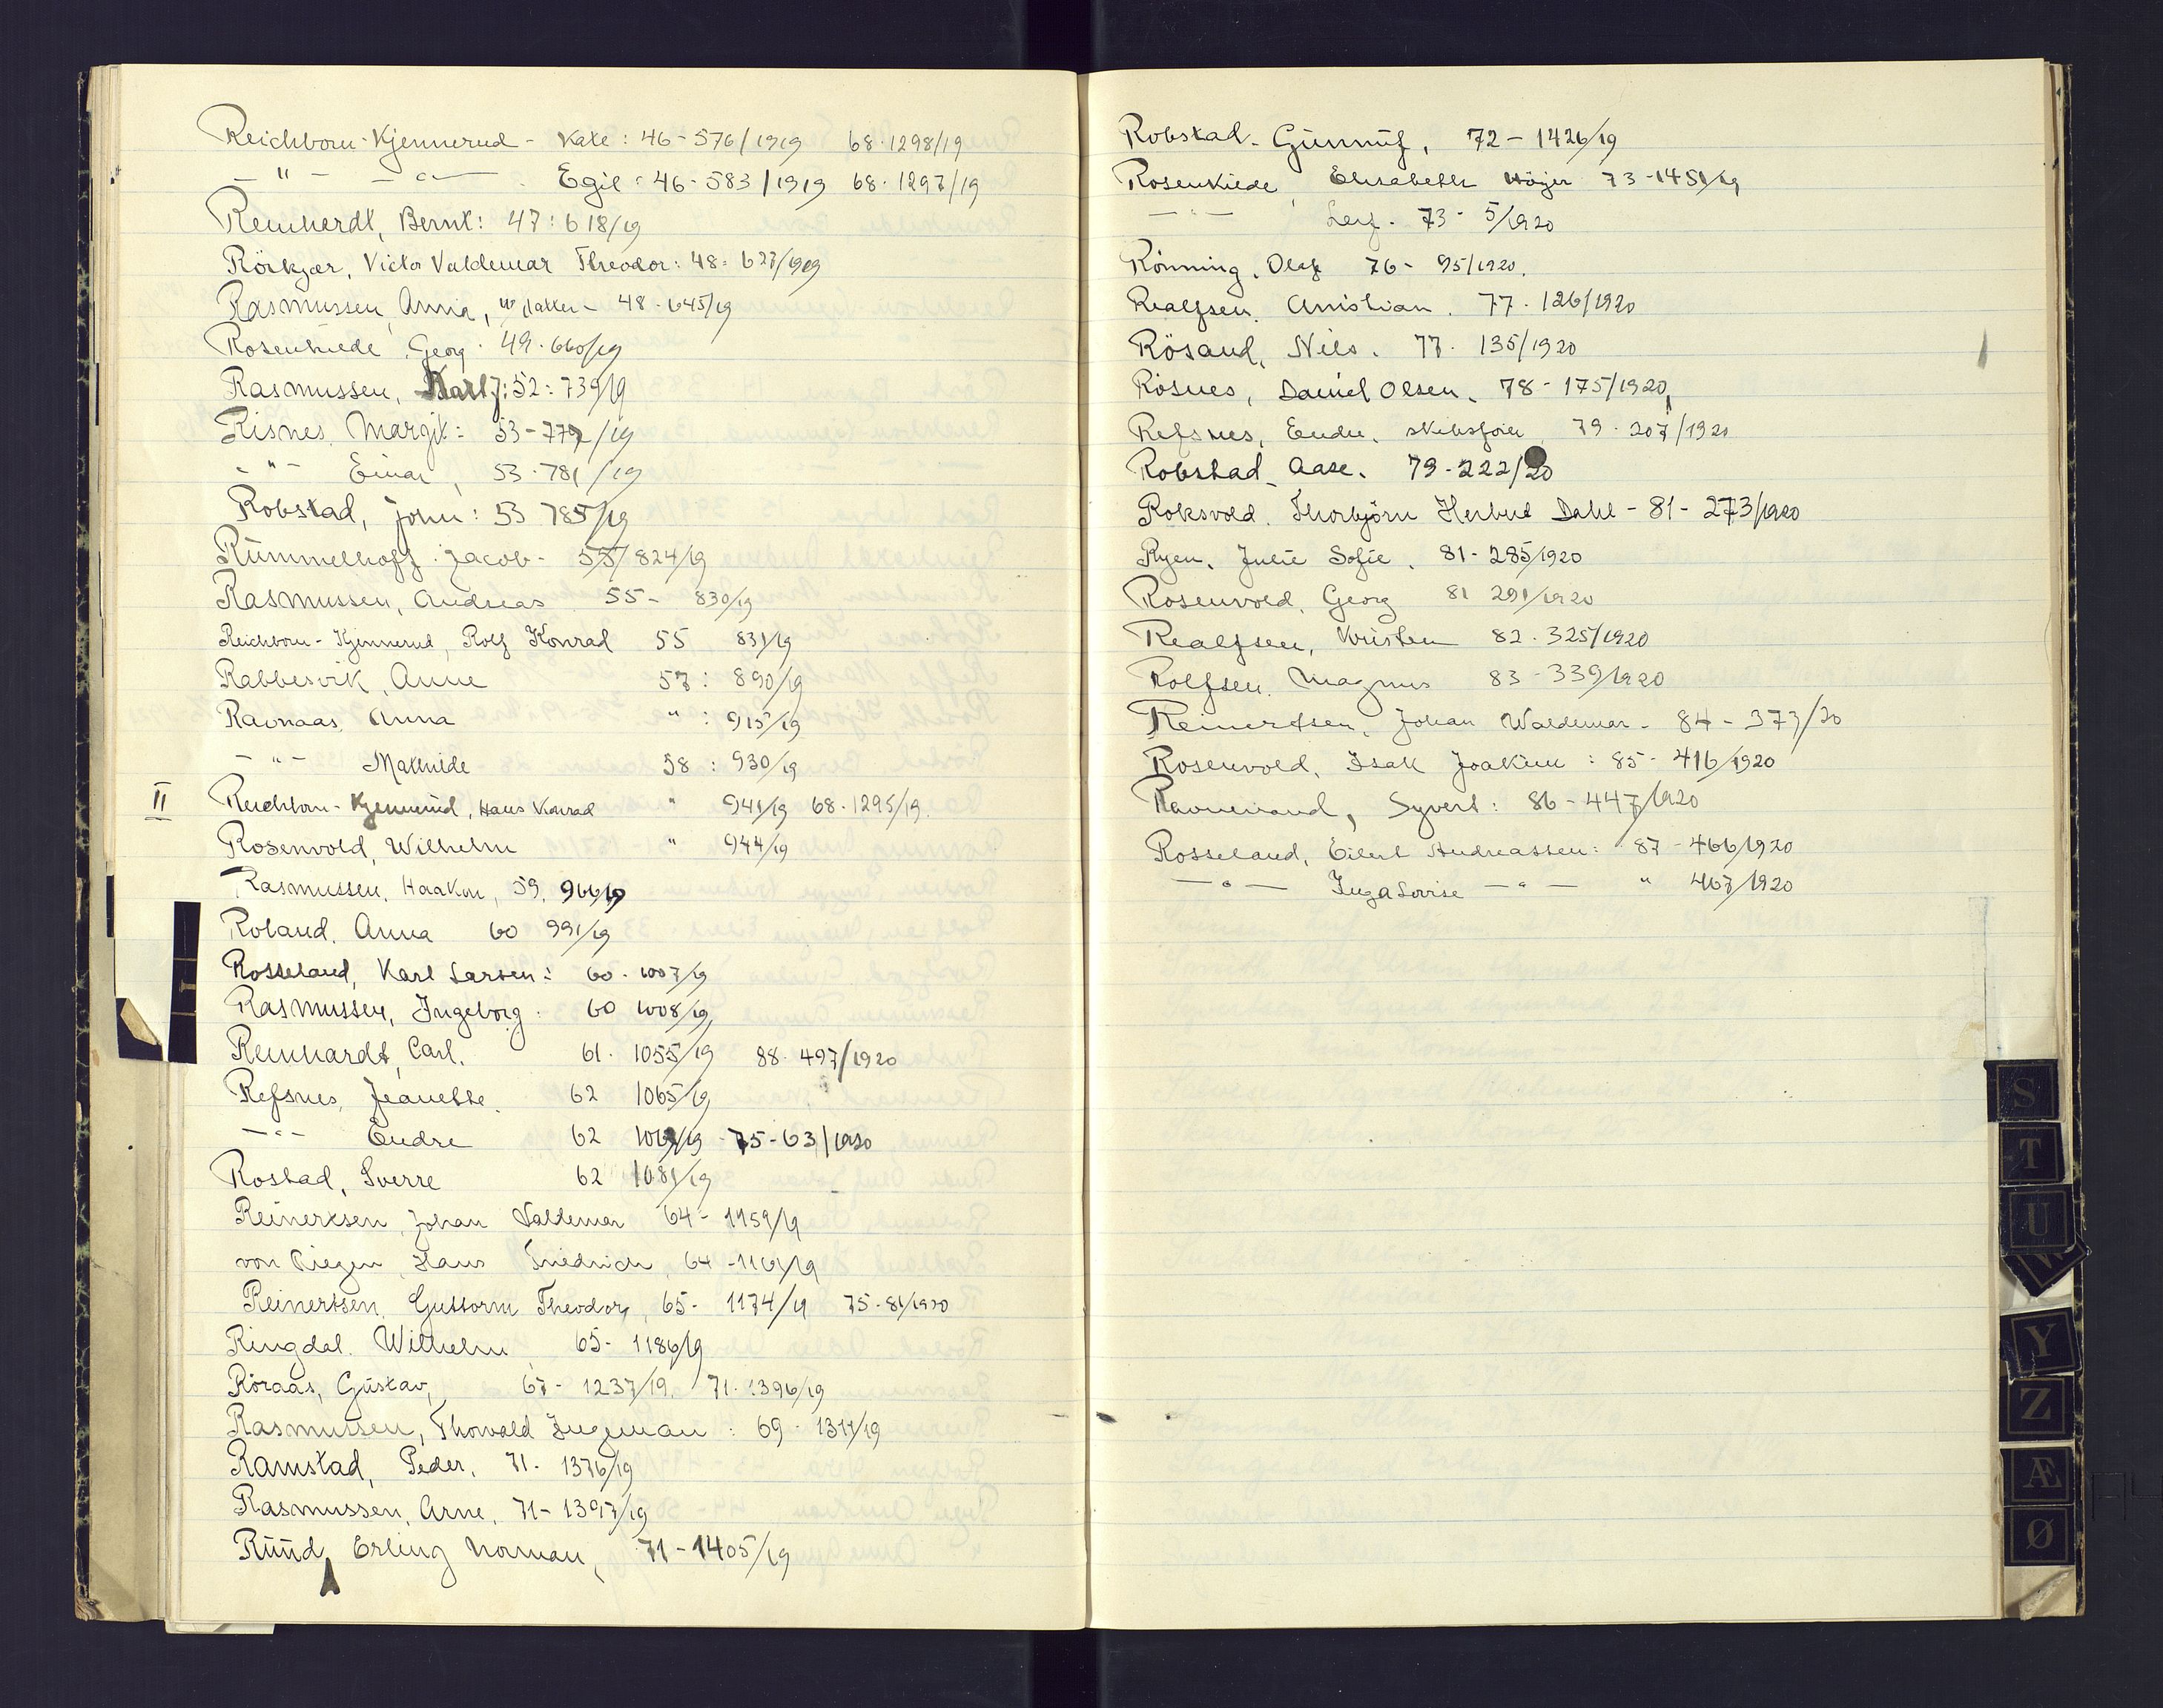 Reichborn-Kjennerud - Kate: 46-576/1919 68-1298/19
- " - - " - Egil: 46-583/1919 68-1297/19
Reinherdt, Bernt: 47: 618/19
Rörkjær, Victor Valdemar Theodor: 48: 627/1919
Rasmussen, Anna, 48-645/19
Rosenkilde, Georg. 49-660/19
Rasmussen, Karl J: 52: 739/19
Risnes, Margit: 53-779/19
- " - Einar, 53-781/19
Robstad, John: 53 785/19
Rummelhoff. Jacob- 55/824/19
Rasmussen, Andreas 55- 830/19
Reichborn-Kjennerud, Rolf Konrad 55 831/19
Rabbesvik, Anne 57: 890/19
Ravnaas, Anna " : 915/19
- " - Mathilde 58: 930/19
II Reichborn-Kjennerud, Hans Konrad " 941/19 68-1295/19.
Rosenvold, Wilhelm " 944/19
Rasmussen, Haakon, 59. 966/19
Roland. Anna 60 991/19
Rosseland, Karl Larsen: 60-1007/19
Rasmussen, Ingeborg: 60 1008/19
Reinhardt, Carl. 61. 1055/19 88-497/1920
Refsnes, Jeanette. 62 1065/19
- " - Endre 62 75-63/1920
Rostad, Sverre 62 1081/19
Reinertsen, Johan Valdemar 64- 1159/19
von Riegen, Hans Friedrich, 64-1161/19
Reinertsen, Guttorm Theodor, 65- 1174/19 75-81/1920
Ringdal. Wilhelm 65- 1186/19
Röraas, Gustav, 67- 1237/19. 71-1396/19
Rasmussen, Thorvald Ingeman: 69-1311/19
Ramstad, Peder. 71- 1376/19
Rasmussen, Arne, 71-1397/19
Ruud, Erling Norman, 71-1405/19
Robstad- Gunnuf, 72-1426/19
Rosenkilde, Elisabeth Höyer 73-1451/19
- " - Leif. 73- 5/1920
Rönning, Olaf 76- 95/1920.
Realfsen, Christian. 77. 126/1920
Rösand, Nils. 77. 135/1920
Rösnes, Daniel Olsen. 78-175/1920,
Refsnes, Endre, skibsfører 79-207/1920
Robstad, Aase. 79-222/20
Roksvold. Thorbjörn Herbert Dahl-81-273/1920
Ryen, Julie Sofie. 81-285/1920
Rosenvold, Georg 81 291/1920
Realfsen, Kristen 82-325/1920
Rolfsen. Magnus 83-339/1920
Reinertsen, Johan Waldemar- 84-373/20
Rosenvold, Isak Joakim: 85-416/1920
Syvert: 86-447/1920
Rosseland, Eilert Andreassen: 87-466/1920
- " - Inga Lovise - " - " 467/1920
S
T
U
W
Y
Z
Æ
Ø